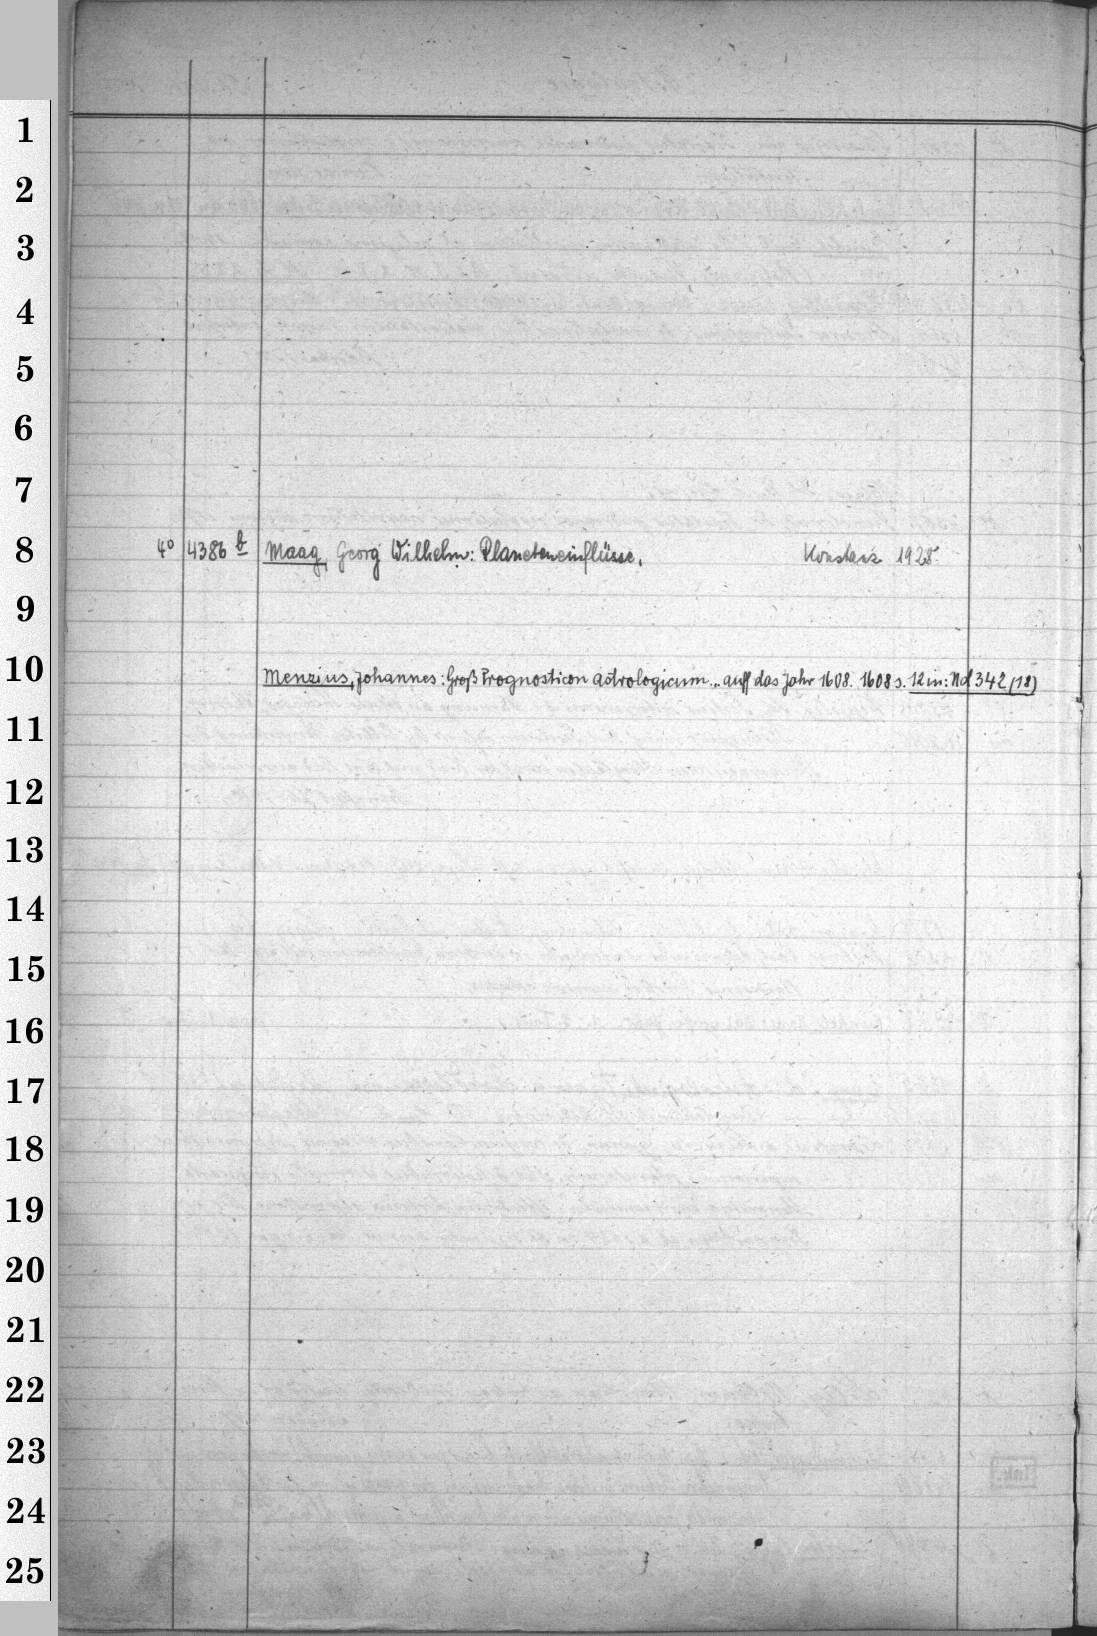 1
2
3
4
5
6
7
8 4° 4386 b Maag, Georg Wilhelm: Planeteneinflüsse. Konstanz 1928.
9
10 Menzius, Johannes: Groß Prognosticon astrologicum... auff das Jahr 1608. 1608 s. 12 in: Nd 342 (18)
11
12
13
14
15
16
17
18
19
20
21
22
23
24
25